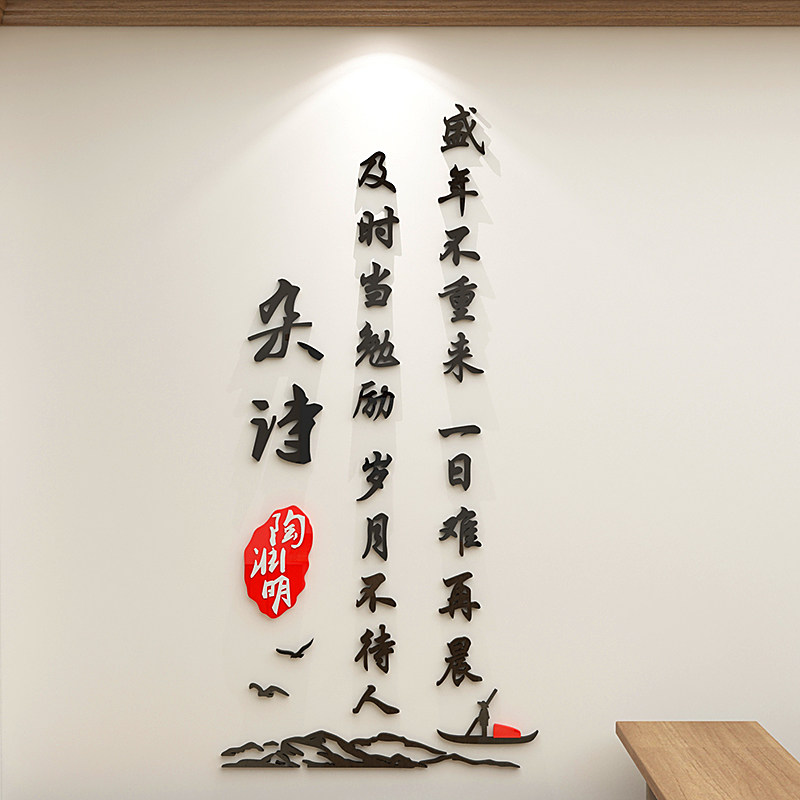 盛年不重来 一日难再晨
及时当勉励 岁月不待人
杂诗
陶渊明